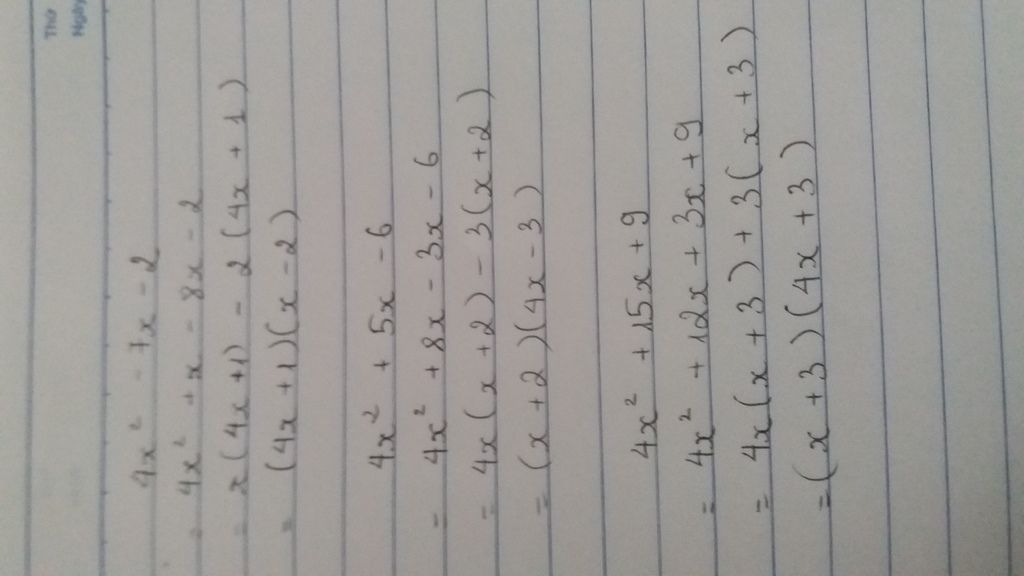 Thứ
Ngày
4x² - 7x - 2
= 4x² + x - 8x - 2
= x(4x+1) - 2(4x+1)
= (4x+1)(x-2)
4x² + 5x - 6
= 4x² + 8x - 3x - 6
= 4x(x+2) - 3(x+2)
= (x+2)(4x-3)
4x² + 15x + 9
= 4x² + 12x + 3x + 9
= 4x(x+3) + 3(x+3)
= (x+3)(4x+3)